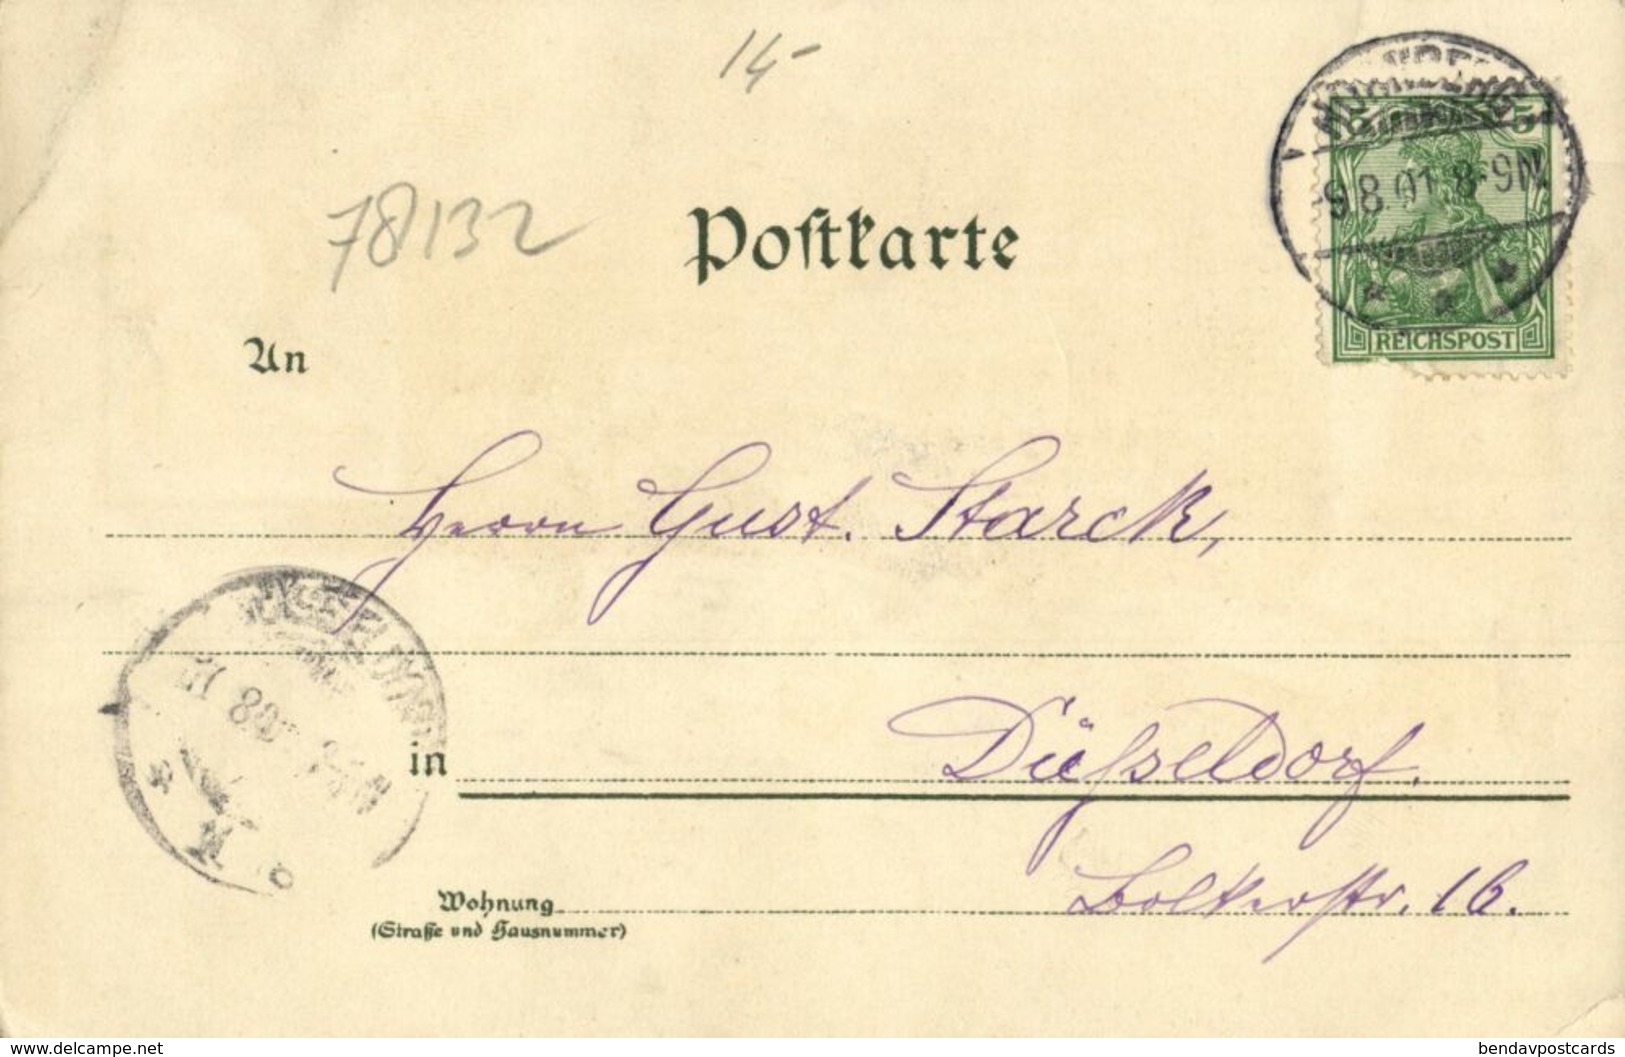 14-
78132
Postkarte
9.8.01 8-9N.
5
REICHSPOST
An
Herrn Gust. Starck,
in Düsseldorf.
Wohnung Bolkerstr. 16.
(Straße und Hausnummer)
www.delcampe.net
bendavpostcards